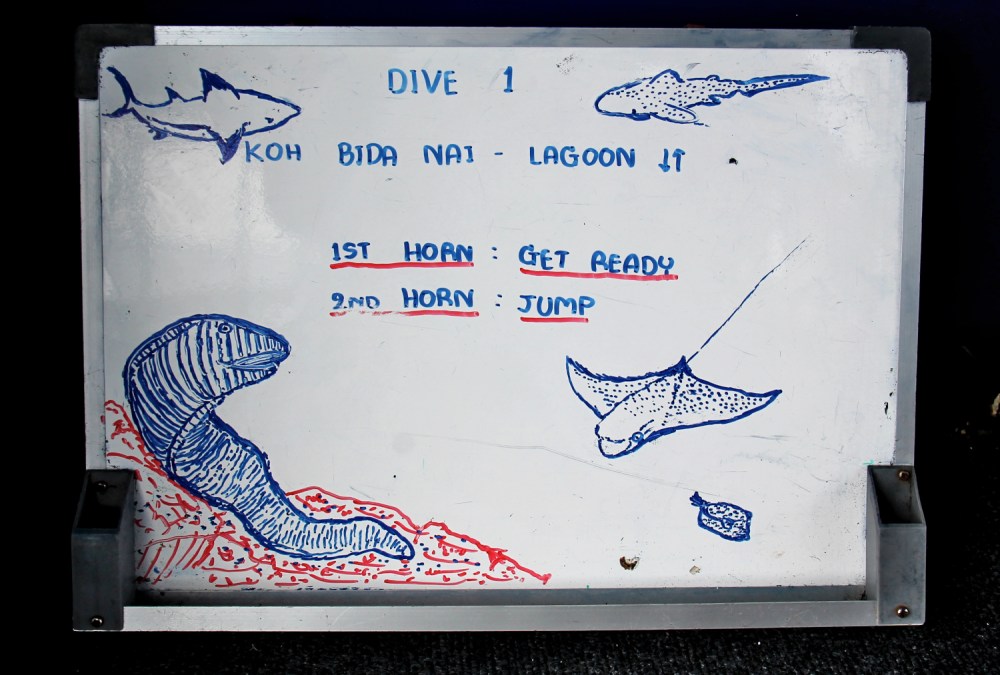 DIVE 1
KOH BIDA NAI - LAGOON ↓↑
1ST HORN : GET READY
2ND HORN : JUMP